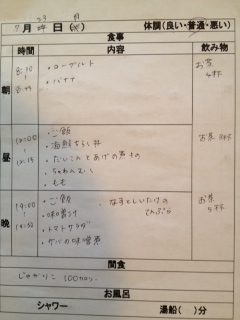 7月 23 日(月) 体調(良い・普通・悪い)
食事
時間 内容 飲み物
朝
8:30
・ヨーグルト
・バナナ
お茶
昼
12:00
・ご飯
・海鮮ちらし丼
・だいこんとあげの煮もの
・ちゃわんむし
・もも
お茶
晩
19:00
・ご飯 ・なすとしいたけの天ぷら
・味噌汁
・トマトサラダ
・サバの味噌煮
お茶
間食
じゃがりこ 100カロリー
お風呂
シャワー 湯船( )分